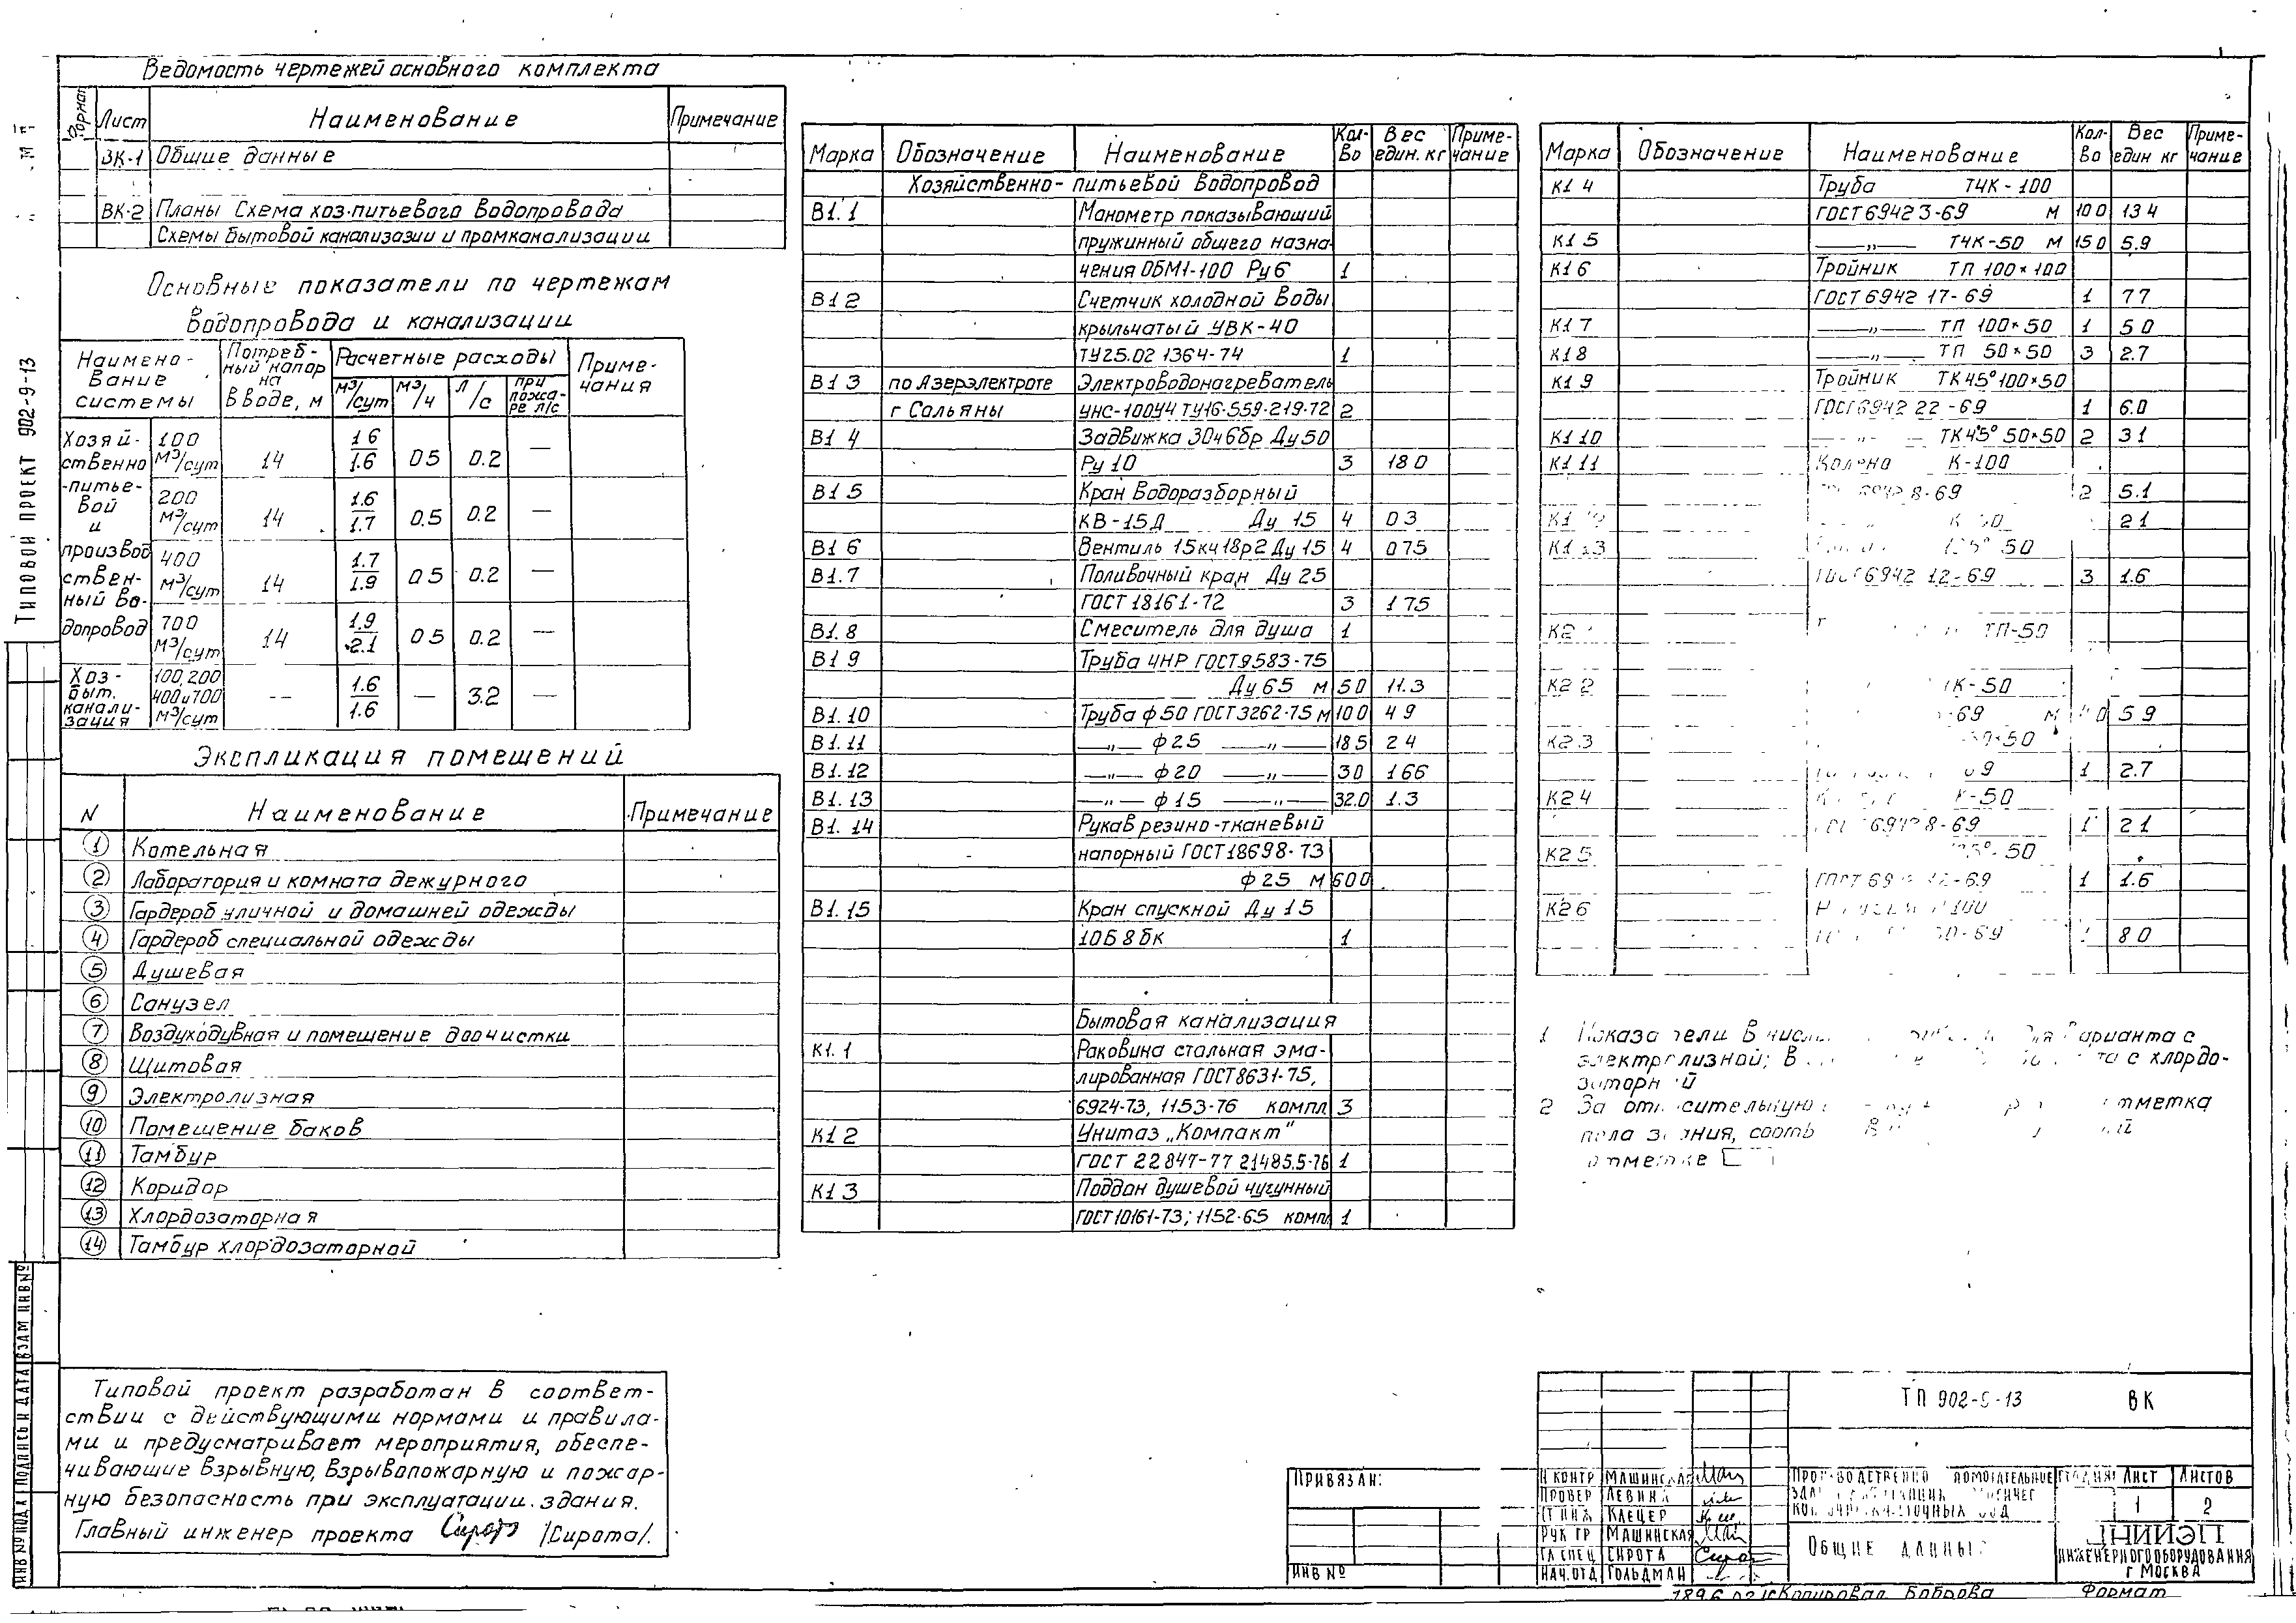 Ведомость чертежей основного комплекта
Формат Лист Наименование Примечание
ВК-1 Общие данные
ВК-2 Планы Схема хоз-питьевого водопровода
Схемы бытовой канализазии и промканализации
Основные показатели по чертежам
водопровода и канализации
Наимено-
вание
системы
Потреб-
ный напор
на
вводе, м
Расчетные расходы
м³/сут м³/ч л/с при пожа-ре л/с
Приме-
чания
Хозяй-
ственно
-питье-
вой
и
производ
ствен-
ный во-
допровод
100 м³/сут 14 1.6/1.6 0.5 0.2 —
200 м³/сут 14 1.6/1.7 0.5 0.2 —
400 м³/сут 14 1.7/1.9 0.5 0.2 —
700 м³/сут 14 1.9/2.1 0.5 0.2 —
Хоз-
быт.
канали-
зация
100,200 400и700 м³/сут — 1.6/1.6 — 3.2 —
Экспликация помещений
N Наименование Примечание
1 Котельная
2 Лаборатория и комната дежурного
3 Гардероб уличной и домашней одежды
4 Гардероб специальной одежды
5 Душевая
6 Санузел
7 Воздуходувная и помещение доочистки
8 Щитовая
9 Электролизная
10 Помещение баков
11 Тамбур
12 Коридор
13 Хлордозаторная
14 Тамбур хлордозаторной
Типовой проект разработан в соответ-
ствии с действующими нормами и правила-
ми и предусматривает мероприятия, обеспе-
чивающие взрывную, взрывопожарную и пожар-
ную безопасность при эксплуатации здания.
Главный инженер проекта /Сирота/.
Марка Обозначение Наименование Кол-во Вес един. кг Приме-чание
Хозяйственно-питьевой водопровод
В1.1 Манометр показывающий
пружинный общего назна-
чения ОБМ1-100 Ру6 1
В1 2 Счетчик холодной воды
крыльчатый УВК-40
ТУ25.02 1364-74 1
В1 3 по Азерэлектроте Электроводонагреватель
г Сальяны УНС-100У4 ТУ16-559-219-72 2
В1 4 Задвижка 30ч6бр Ду50
Ру 10 3 18 0
В1 5 Кран водоразборный
КВ-15Д Ду 15 4 0 3
В1 6 Вентиль 15кч18р2 Ду 15 4 0 75
В1.7 Поливочный кран Ду 25
ГОСТ 18161-72 3 1 75
В1.8 Смеситель для душа 1
В1 9 Труба ЧНР ГОСТ9583-75
Ду 65 м 5 0 11.3
В1.10 Труба ф50 ГОСТ3262-75 м 10 0 4 9
В1.11 —„— ф25 —„— 18 5 2 4
В1.12 —„— ф20 —„— 3 0 1 66
В1.13 —„— ф15 —„— 32.0 1.3
В1.14 Рукав резино-тканевый
напорный ГОСТ18698-73
ф25 м 60 0
В1.15 Кран спускной Ду 15
10Б 8 бк 1
Бытовая канализация
К1.1 Раковина стальная эма-
лированная ГОСТ8631-75,
6924-73, 1153-76 компл 3
К1 2 Унитаз „Компакт"
ГОСТ 22847-77 21485.5-76 1
К1 3 Поддон душевой чугунный
ГОСТ10161-73; 1152-65 компл 1
Марка Обозначение Наименование Кол-во Вес един кг Приме-чание
К1 4 Труба ТЧК-100
ГОСТ6942 3-69 м 10 0 13 4
К1 5 —„— ТЧК-50 м 15 0 5.9
К1 6 Тройник ТП 100×100
ГОСТ6942 17-69 1 7 7
К1 7 —„— ТП 100×50 1 5 0
К1 8 —„— ТП 50×50 3 2.7
К1 9 Тройник ТК45° 100×50
ГОСТ6942 22-69 1 6.0
К1 10 —„— ТК45° 50×50 2 3 1
К1 11 Колено К-100
6942 8-69 2 5.1
2 1
К1 13 50
ГОСТ6942 12-69 3 1.6
К2 ТП-50
К2 2 50
-69 м 5 9
К2 3 50
1 2.7
К2 4 К-50
6942 8-69 1 2 1
К2 5 50
ГОСТ 12-69 1 1.6
К2 6 100
-69 8 0
1 Показатели в варианта с
электролизной; в с хлордо-
заторной
2 За относительную отметка
пола здания,
отметке
ПРИВЯЗАН:
ИНВ №
ТП 902-9-13 ВК
Н КОНТР МАШИНСКАЯ
ПРОВЕР ЛЕВИНА
СТ ИНЖ КЛЕЦЕР
РУК ГР МАШИНСКАЯ
ГЛ СПЕЦ СИРОТА
НАЧ.ОТД ГОЛЬДМАН
ПРОИЗВОДСТВЕННО ПОМОГАТЕЛЬНОЕ
СТАДИЯ ЛИСТ ЛИСТОВ
1 2
ОБЩИЕ ДАННЫЕ
ЦНИИЭП
ИНЖЕНЕРНОГО ОБОРУДОВАНИЯ
г МОСКВА
Копировал Боброва Формат
ТИПОВОЙ ПРОЕКТ 902-9-13
ИНВ № ПОДЛ ПОДПИСЬ И ДАТА ВЗАМ ИНВ №